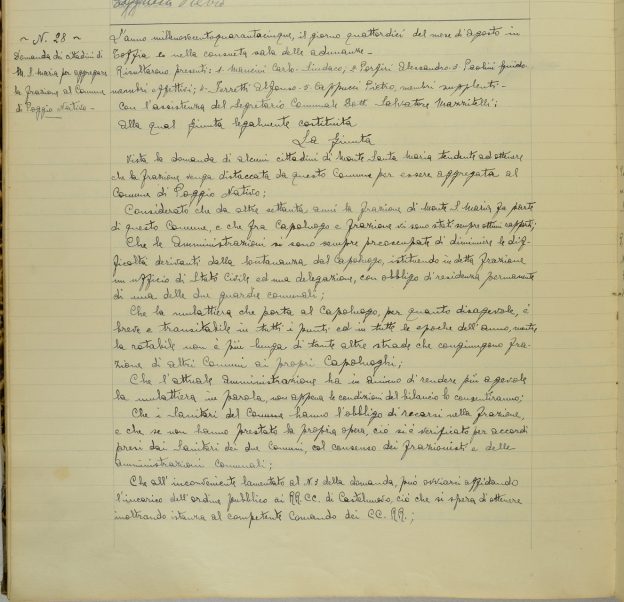 ~ N. 28 ~
Domanda di cittadini di
M. S. Maria per aggregare
la frazione al Comune
di Poggio Nativo -
L'anno millenovecentoquarantacinque, il giorno quattordici del mese d'agosto in
Toffia e nella consueta sala delle adunanze -
Risultarono presenti: 1. Mancini Carlo - Sindaco; 2. Porfiri Alessandro 3. Paolini Guido
membri effettivi; 4. Perretti Alfonso 5. Cappucci Pietro, membri supplenti -
Con l'assistenza del Segretario Comunale Dott. Salvatore Mazzitelli;
Alla qual giunta legalmente costituita
La Giunta
Vista la domanda di alcuni cittadini di Monte Santa Maria tendente ad ottenere
che la frazione venga distaccata da questo Comune per essere aggregata al
Comune di Poggio Nativo;
Considerato che da oltre settanta anni la frazione di Monte S. Maria fa parte
di questo Comune, e che fra Capoluogo e frazione vi sono stati sempre ottimi rapporti;
Che le Amministrazioni si sono sempre preoccupate di diminuire le dif=
ficoltà derivanti dalla lontananza dal Capoluogo, istituendo in detta frazione
un ufficio di Stato Civile ed una delegazione, con obbligo di residenza permanente
di una delle due guardie comunali;
Che la mulattiera che porta al Capoluogo, per quanto disagevole, è
breve e transitabile in tutti i punti ed in tutte le epoche dell'anno, mentre
la rotabile non è più lunga di tante altre strade che congiungono fra=
zione di altri Comuni ai propri Capoluoghi;
Che l'attuale Amministrazione ha in animo di rendere più agevole
la mulattiera in parola, non appena le condizioni del bilancio lo consentiranno;
Che i Sanitari del Comune hanno l'obbligo di recarsi nella frazione,
e che se non hanno prestato la propria opera, ciò si è verificato per accordi
presi dai Sanitari dei due Comuni, col consenso dei frazionisti e delle
Amministrazioni Comunali;
Che all'inconveniente lamentato al N° della domanda, può ovviarsi affidando
l'incarico dell'ordine pubblico ai RR. CC. di Castelnuovo, ciò che si spera d'ottenere
inoltrando istanza al competente Comando dei CC. RR.;